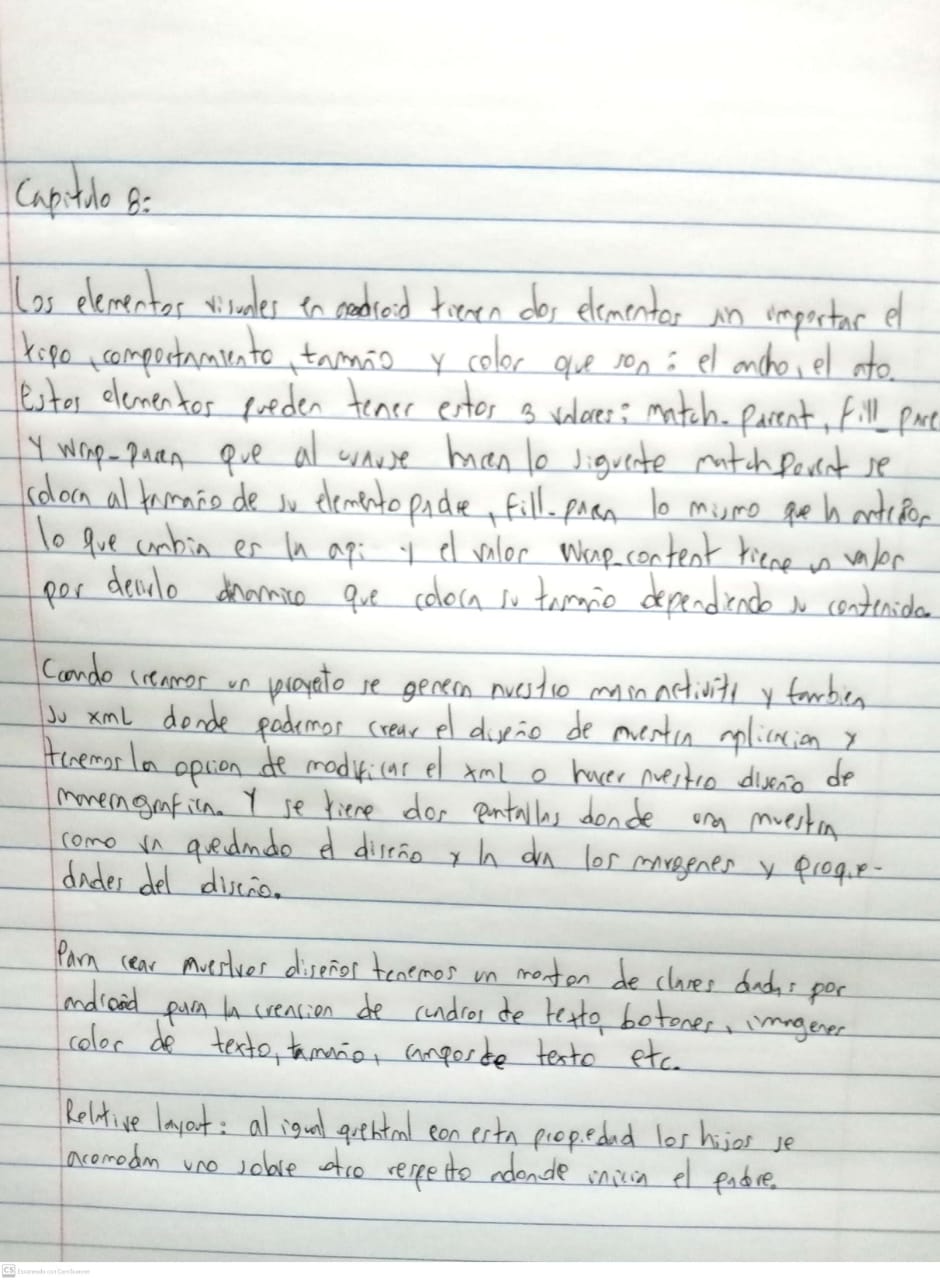 Capitulo 8:
Los elementos visuales en android tienen dos elementos sin importar el
tipo, comportamiento, tamaño y color que son: el ancho, el ato.
Estos elementos pueden tener estos 3 valores: match-parent, fill_pare
y wrap-paren que al usarse hacen lo siguente match parent se
coloca al tamaño de su elemento padre, fill-paren lo mismo que la anterior
lo que cambia es la api y el valor wrap_content tiene un valor
por decirlo dinamico que coloca su tamaño dependiendo su contenido.
Cuando creamos un proyeto se genera nuestro main activity y tambien
su xml donde podemos crear el diseño de nuestra aplicacion y
tenemos la opcion de modificar el xml o hacer nuestro diseño de
manera grafica. Y se tiene dos pantallas donde una muestra
como va quedando el diseño y la dra los margenes y propie-
dades del diseño.
Para crear nuestros diseños tenemos un monton de clares dadas por
android para la creacion de cuadros de texto, botones, imagenes
color de texto, tamaño, campos de texto etc.
Relative layout: al igual que html con esta propiedad los hijos se
acomodan uno sobre otro respecto adonde inicia el padre.
CS Escaneado con CamScanner